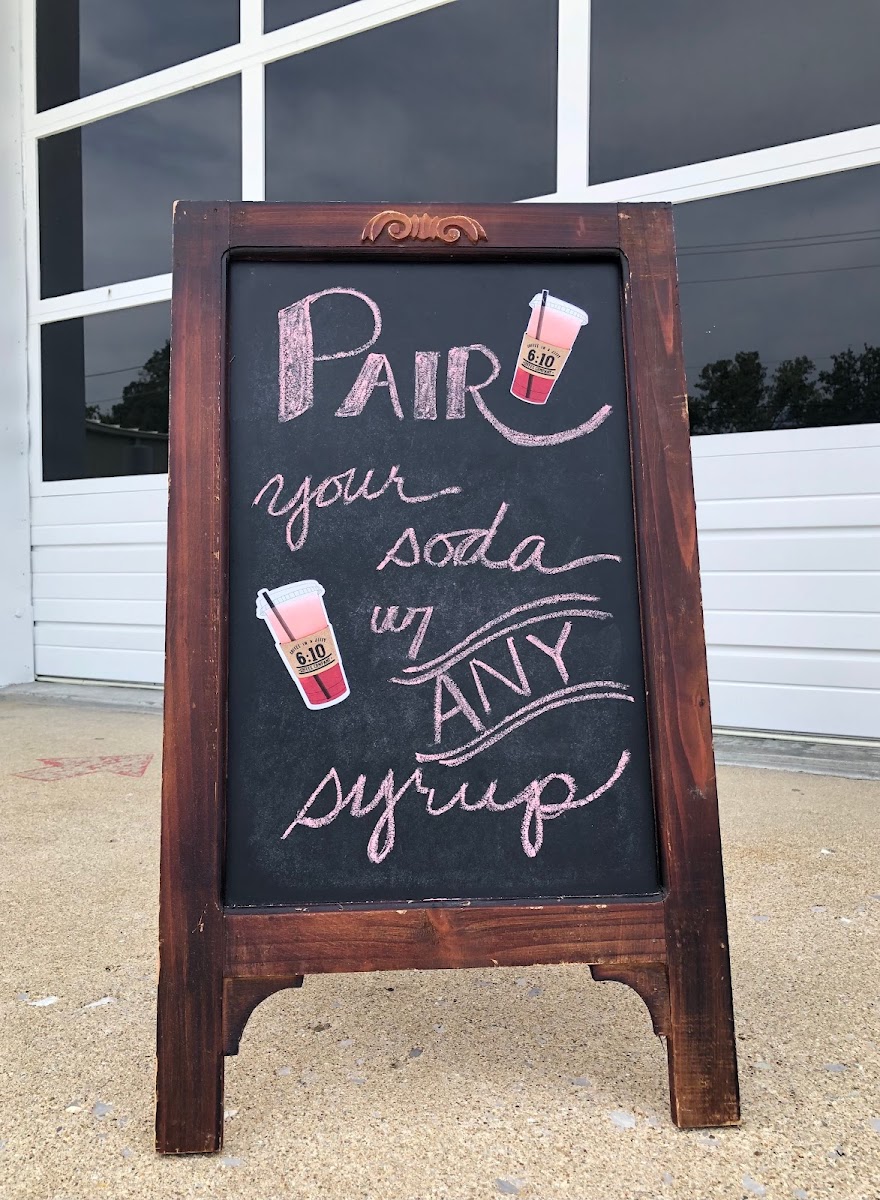 PAIR
your
soda
w/
ANY
syrup
6:10
6:10